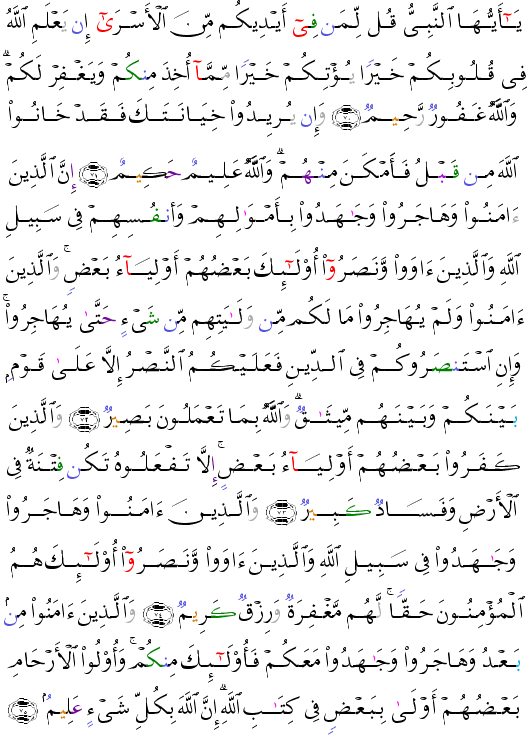 يَـٰٓأَيُّهَا ٱلنَّبِىُّ قُل لِّمَن فِىٓ أَيْدِيكُم مِّنَ ٱلْأَسْرَىٰٓ إِن يَعْلَمِ ٱللَّهُ
فِى قُلُوبِكُمْ خَيْرًا يُؤْتِكُمْ خَيْرًا مِّمَّآ أُخِذَ مِنكُمْ وَيَغْفِرْ لَكُمْ ۗ
وَٱللَّهُ غَفُورٌ رَّحِيمٌ ٧٠ وَإِن يُرِيدُوا۟ خِيَانَتَكَ فَقَدْ خَانُوا۟
ٱللَّهَ مِن قَبْلُ فَأَمْكَنَ مِنْهُمْ ۗ وَٱللَّهُ عَلِيمٌ حَكِيمٌ ٧١ إِنَّ ٱلَّذِينَ
ءَامَنُوا۟ وَهَاجَرُوا۟ وَجَـٰهَدُوا۟ بِأَمْوَٰلِهِمْ وَأَنفُسِهِمْ فِى سَبِيلِ
ٱللَّهِ وَٱلَّذِينَ ءَاوَوا۟ وَّنَصَرُوٓا۟ أُو۟لَـٰٓئِكَ بَعْضُهُمْ أَوْلِيَآءُ بَعْضٍ ۚ وَٱلَّذِينَ
ءَامَنُوا۟ وَلَمْ يُهَاجِرُوا۟ مَا لَكُم مِّن وَلَـٰيَتِهِم مِّن شَىْءٍ حَتَّىٰ يُهَاجِرُوا۟ ۚ
وَإِنِ ٱسْتَنصَرُوكُمْ فِى ٱلدِّينِ فَعَلَيْكُمُ ٱلنَّصْرُ إِلَّا عَلَىٰ قَوْمٍۭ
بَيْنَكُمْ وَبَيْنَهُم مِّيثَـٰقٌ ۗ وَٱللَّهُ بِمَا تَعْمَلُونَ بَصِيرٌ ٧٢ وَٱلَّذِينَ
كَفَرُوا۟ بَعْضُهُمْ أَوْلِيَآءُ بَعْضٍ ۚ إِلَّا تَفْعَلُوهُ تَكُن فِتْنَةٌ فِى
ٱلْأَرْضِ وَفَسَادٌ كَبِيرٌ ٧٣ وَٱلَّذِينَ ءَامَنُوا۟ وَهَاجَرُوا۟
وَجَـٰهَدُوا۟ فِى سَبِيلِ ٱللَّهِ وَٱلَّذِينَ ءَاوَوا۟ وَّنَصَرُوٓا۟ أُو۟لَـٰٓئِكَ هُمُ
ٱلْمُؤْمِنُونَ حَقًّا ۚ لَّهُم مَّغْفِرَةٌ وَرِزْقٌ كَرِيمٌ ٧٤ وَٱلَّذِينَ ءَامَنُوا۟ مِنۢ
بَعْدُ وَهَاجَرُوا۟ وَجَـٰهَدُوا۟ مَعَكُمْ فَأُو۟لَـٰٓئِكَ مِنكُمْ ۚ وَأُو۟لُوا۟ ٱلْأَرْحَامِ
بَعْضُهُمْ أَوْلَىٰ بِبَعْضٍ فِى كِتَـٰبِ ٱللَّهِ ۗ إِنَّ ٱللَّهَ بِكُلِّ شَىْءٍ عَلِيمٌۢ ٧٥